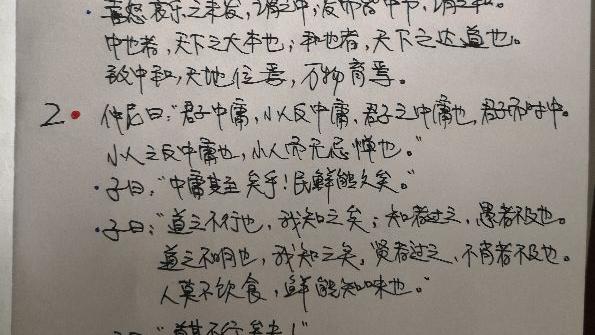 喜怒哀乐之未发，谓之中；发而皆中节，谓之和。
中也者，天下之大本也；和也者，天下之达道也。
致中和，天地位焉，万物育焉。
2 仲尼曰："君子中庸，小人反中庸，君子之中庸也，君子而时中。
小人之反中庸也，小人而无忌惮也。"
·子曰："中庸其至矣乎！民鲜能久矣。"
·子曰："道之不行也，我知之矣；知者过之，愚者不及也。
道之不明也，我知之矣，贤者过之，不肖者不及也。
人莫不饮食，鲜能知味也。"
"道其不行矣夫！"